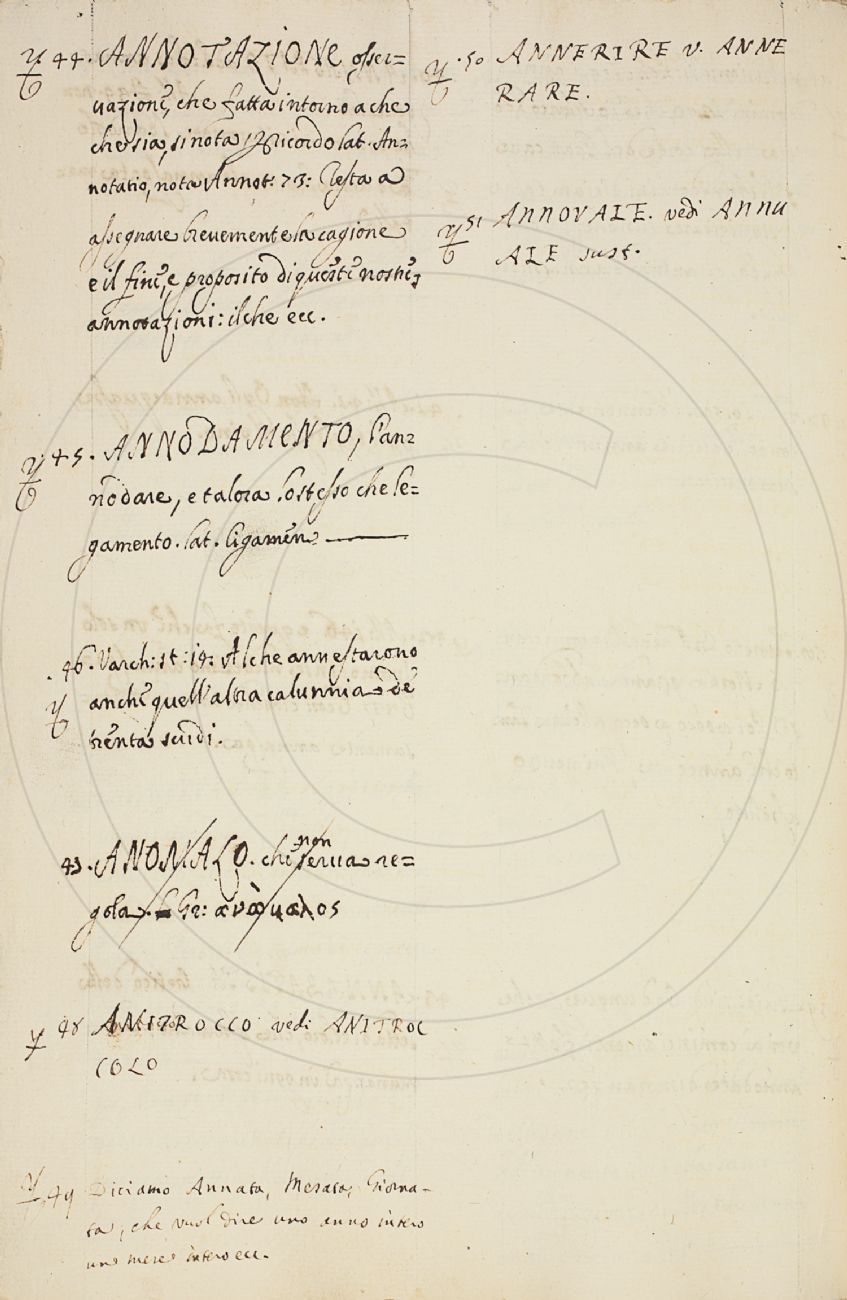 44. ANNOTAZIONE osser=
uazione, che fatta intorno a che
che sia, si nota p Ricordo lat. An=
notatio, nota Annot: 73: Resta a
assegnare breuemente la cagione
e il fine, e proposito di queste nostre
annotazioni: il che ecc.
45. ANNODAMENTO, l'an=
nodare, e talora lo stesso che le=
gamento. lat. ligamen
46. Varch: st: 14: Al che annestarono
anche quell'altra calunnia de
trenta scudi.
43. ANOMALO. che non serua re=
gola. Gr: ανώμαλος
48 ANITROCCO vedi ANITROC
COLO
49 Diciamo Annata, Mesata, Giorna-
ta, che vuol dire uno anno intero
uno mese intero ecc.
50 ANNERIRE v. ANNE
RARE.
51 ANNOVALE. vedi ANNU
ALE sust.